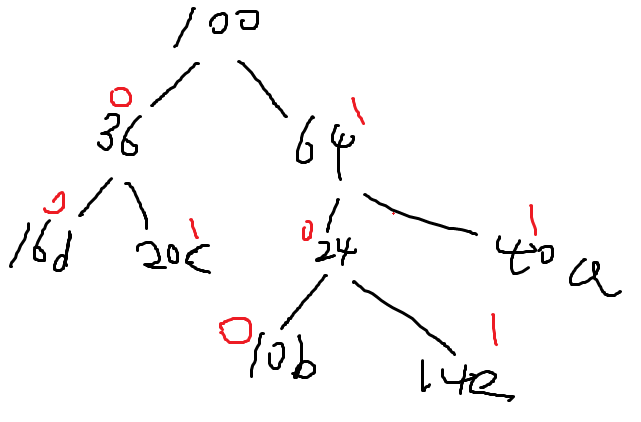 100
0
36
1
64
0
16d
1
20c
0
24
1
40 a
0
10b
1
14e